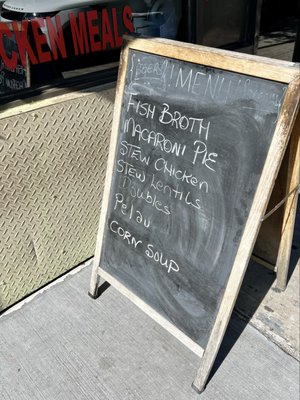 CKEN MEALS
MENU
FISH BROTH
MACARONI PIE
STEW CHICKEN
STEW LENTILS
DOUBLES
Pelau
CORN SOUP